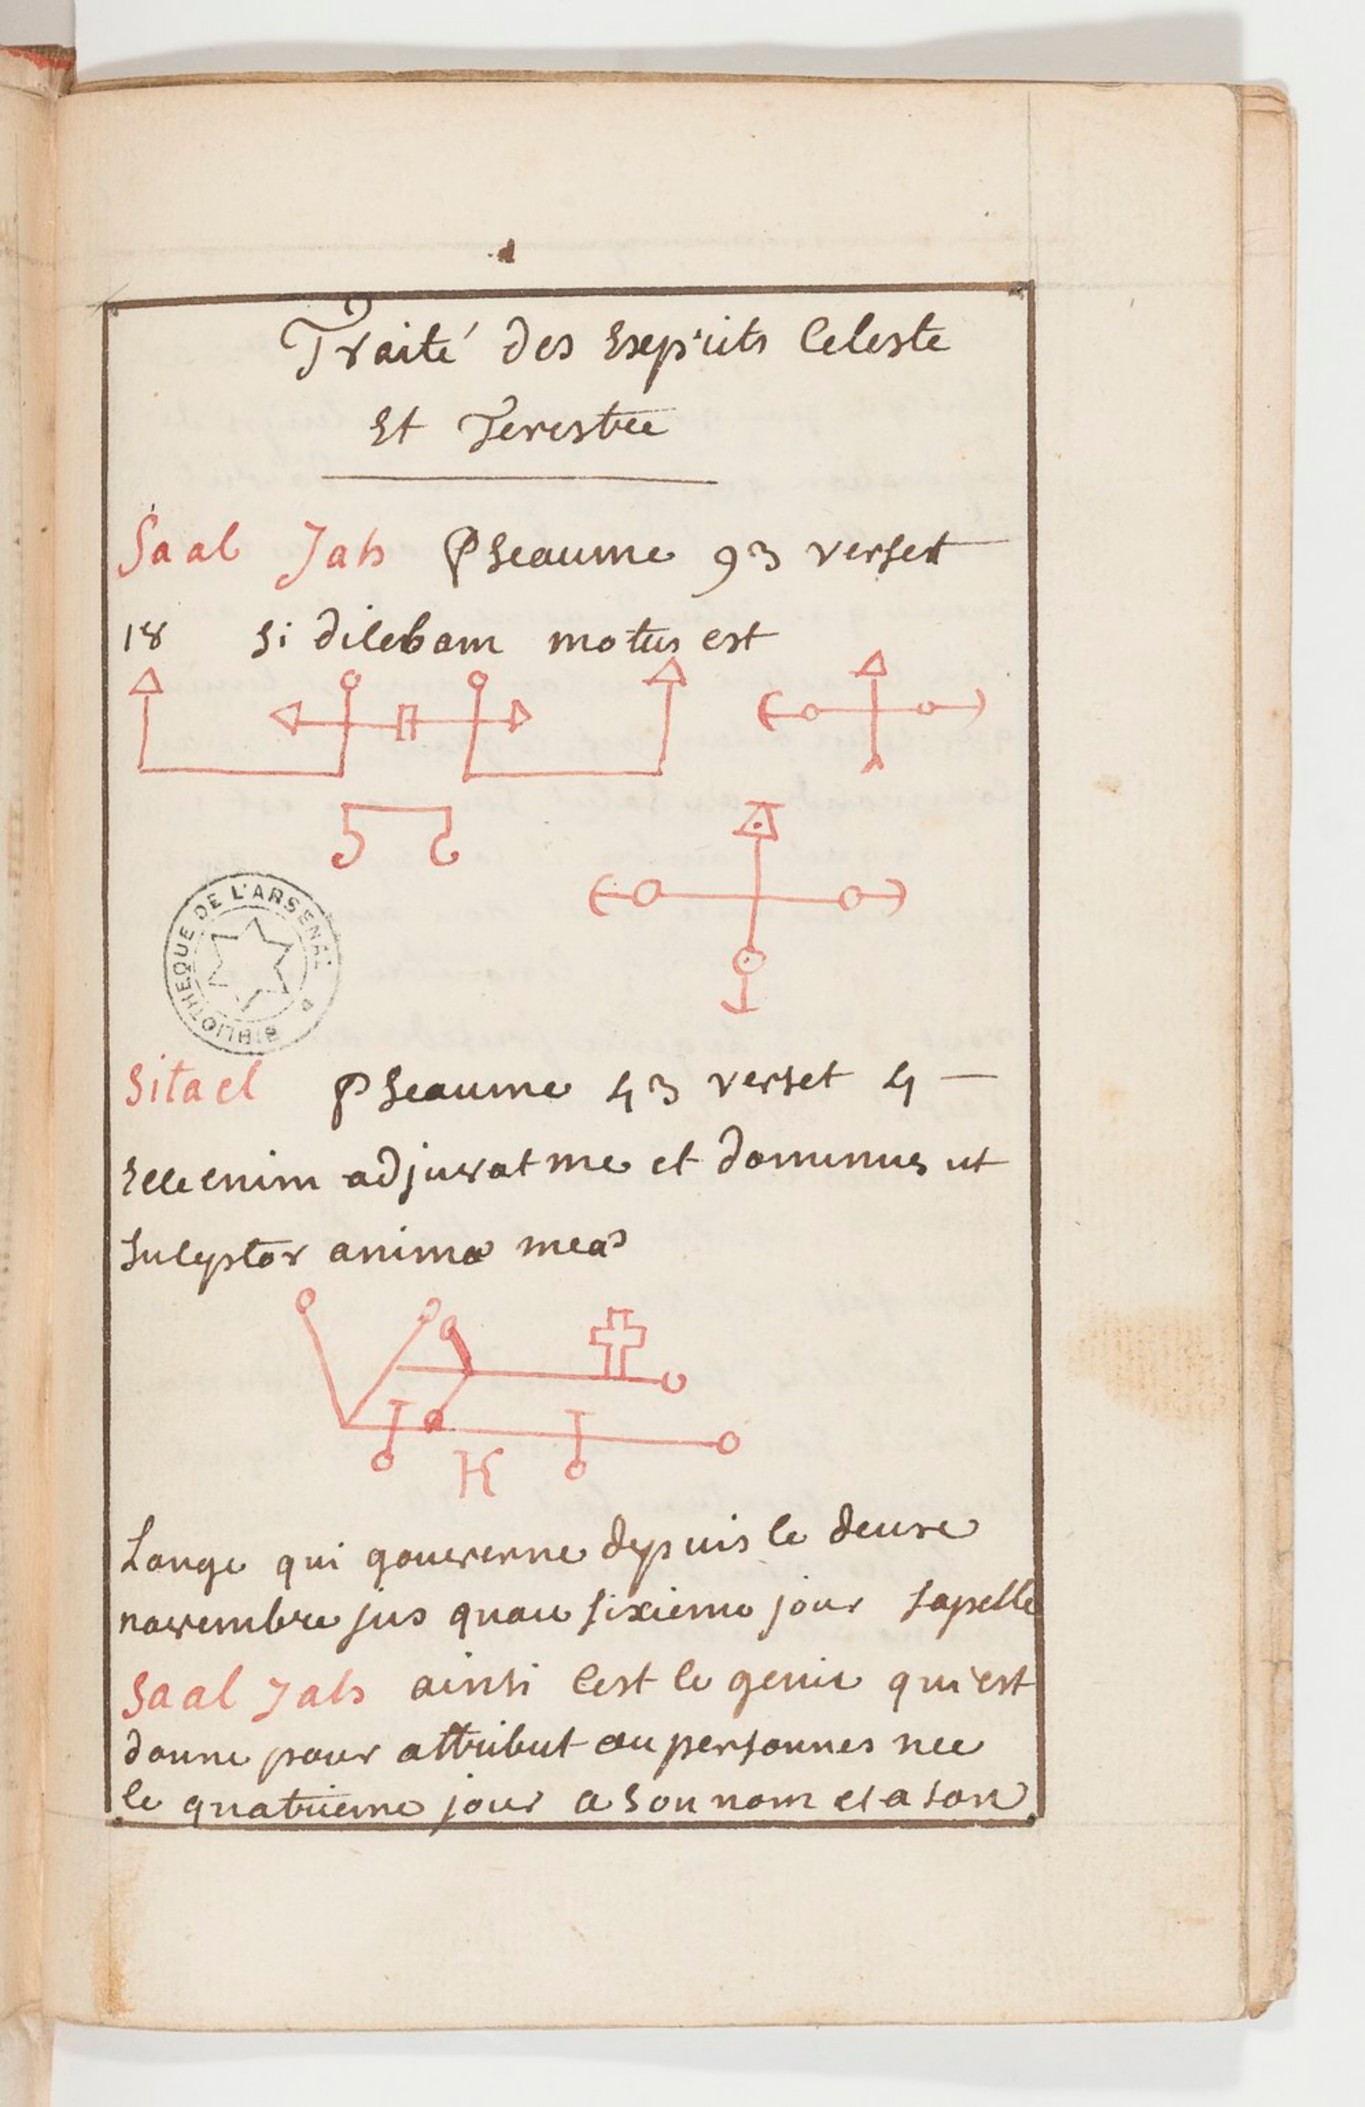 Traité des Esprits Celeste
Et Terestre
Saal Jah Pseaume 93 verset
18 Si dilebam motus est
BIBLIOTHEQUE DE L'ARSENAL
Sitael Pseaume 43 verset 4
Elle enim adjuvat me et dominus ut
suleptor anima meas
K
Lange qui gouverne depuis le deuse
novembre jus quau sixieme jour sapelle
Saal Jah ainsi Cest le genie qui est
donne pour attribut au personnes nee
le quatrieme jour a son nom et a son